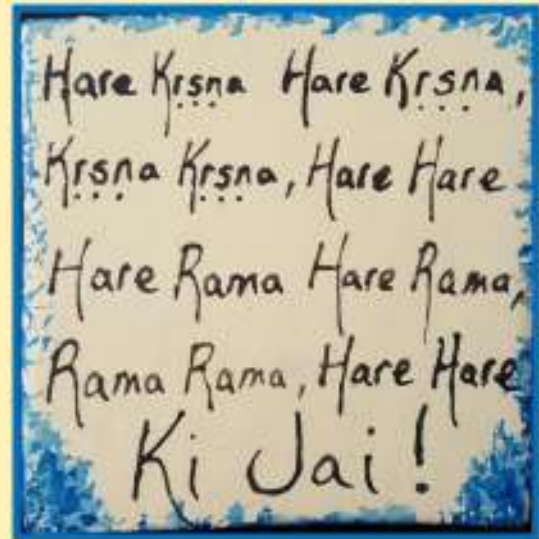 Hare Kṛṣṇa Hare Kṛṣṇa,
Kṛṣṇa Kṛṣṇa, Hare Hare
Hare Rama Hare Rama,
Rama Rama, Hare Hare
Ki Jai!